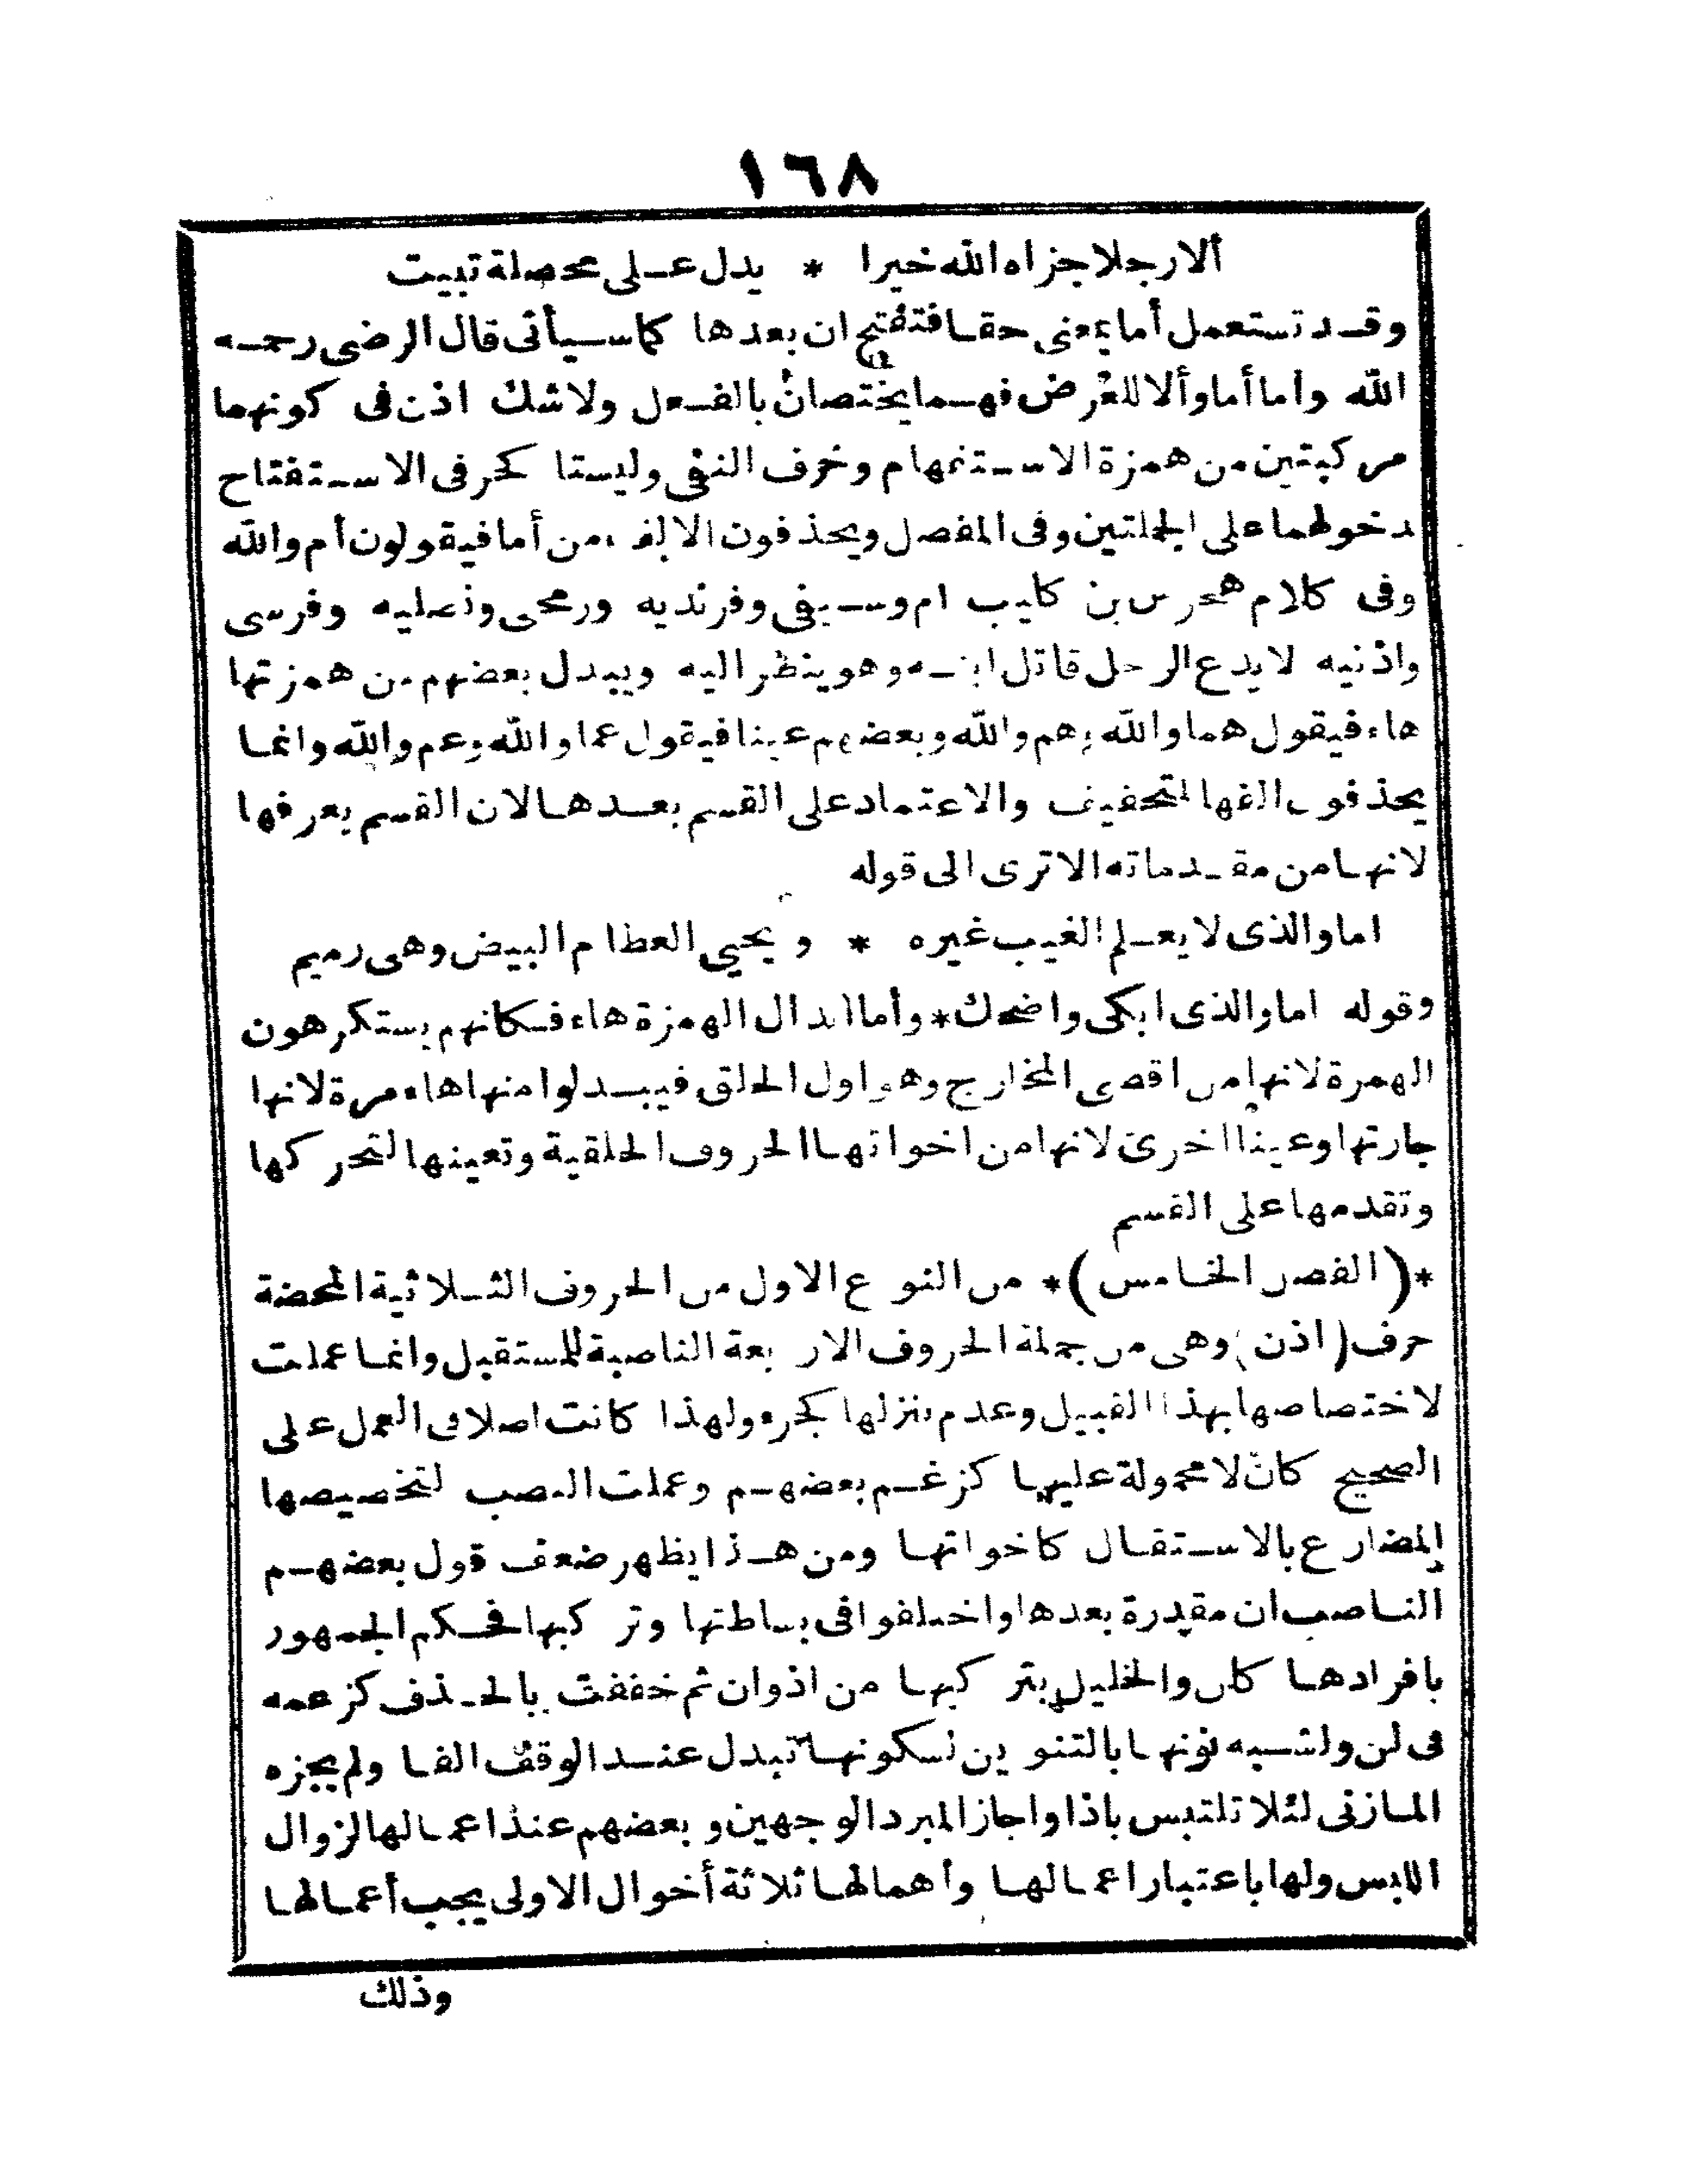 ١٦٨
ألا رجلا جزاه الله خيرا * يدل على محصلة تبيت
وقد تستعمل أما بمعنى حقا فتفتح ان بعدها كما سيأتى قال الرضى رحمه
الله وأما أما وألا للعرض فهما يختصان بالفعل ولا شك اذن فى كونهما
مركبتين من همزة الاستفهام وحرف النفى وليستا كحرفى الاستفتاح
لدخولهما على الجملتين وفى المفصل ويحذفون الالف من أما فيقولون أم والله
وفى كلام هجرس بن كليب ام وسيفى وفرنديه ورمحى ونصليه وفرسى
واذنيه لا يدع الرجل قاتل ابيه وهو ينظر اليه ويبدل بعضهم من همزتها
هاء فيقول هما والله وهم والله وبعضهم عينا فيقول عما والله وعم والله وانما
يحذفون الفها لتخفيف والاعتماد على القسم بعدها لان القسم يعرفها
لانها من مقدماته الا ترى الى قوله
اما والذى لا يعلم الغيب غيره * ويحيى العظام البيض وهى رميم
وقوله اما والذى ابكى واضحك * وأما ابدال الهمزة هاء فكانهم يستكرهون
الهمزة لانها من اقصى المخارج وهو اول الحلق فيبدلوا منها هاء مرة لانها
جارتها وعينا اخرى لانها من اخواتها الحروف الحلقية وتعينها لتحركها
وتقدمها على القسم
*(الفصل الخامس)* من النوع الاول من الحروف الثلاثية المحضة
حرف (اذن) وهى من جملة الحروف الاربعة الناصبة للمستقبل وانما عملت
لاختصاصها بهذا القبيل وعدم تنزلها كجزء ولهذا كانت اصلا فى العمل على
الصحيح كان لا محمولة عليها كزعم بعضهم وعملت النصب لتخصيصها
المضارع بالاستقبال كاخواتها ومن هذا يظهر ضعف قول بعضهم
الناصب ان مقدرة بعدها واختلفوا فى بساطتها وتركبها فحكم الجمهور
بافرادها كان والخليل بتركبها من اذ وان ثم خففت بالحذف كزعمه
فى لن ولشبه نونها بالتنوين لسكونها تبدل عند الوقف الفا ولم يجزه
المازنى لئلا تلتبس باذا واجاز المبرد الوجهين وبعضهم عند اعمالها لزوال
اللبس ولها باعتبار اعمالها وأهمالها ثلاثة أحوال الاولى يجب أعمالها
وذلك